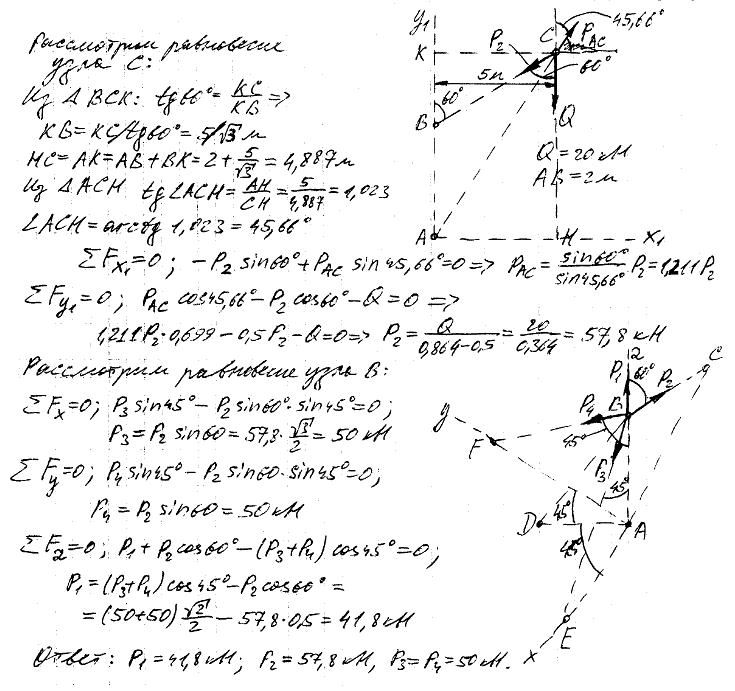 Рассмотрим равновесие
узла C:
Из Δ BCK: tg60° = KC/KB =>
KB = KC/tg60° = 5/√3 м
HC = AK = AB + BK = 2 + 5/√3 = 4,887 м
Из Δ ACH tg∠ACH = AH/CH = 5/4,887 = 1,023
∠ACH = arctg 1,023 = 45,66°
ΣFx₁ = 0; -P₂ sin60° + PAC sin45,66° = 0 => PAC = sin60°/sin45,66° P₂ = 1,211P₂
ΣFy₁ = 0; PAC cos45,66° - P₂ cos60 - Q = 0 =>
1,211P₂·0,699 - 0,5P₂ - Q = 0 => P₂ = Q/(0,864-0,5) = 20/0,364 = 57,8 кН
Рассмотрим равновесие узла B:
ΣFx = 0; P₃ sin45° - P₂ sin60°·sin45° = 0;
P₃ = P₂ sin60 = 57,8·√3/2 = 50 кН
ΣFy = 0; P₄ sin45° - P₂ sin60·sin45° = 0;
P₄ = P₂ sin60 = 50 кН
ΣFz = 0; P₁ + P₂ cos60° - (P₃+P₄) cos45° = 0;
P₁ = (P₃+P₄) cos45° - P₂ cos60° =
= (50+50) √2/2 - 57,8·0,5 = 41,8 кН
Ответ: P₁ = 41,8 кН; P₂ = 57,8 кН, P₃ = P₄ = 50 кН.
y₁
45,66°
K
P₂
C
PAC
5м
60°
60°
B
Q
Q = 20 кН
AB = 2м
A
H
x₁
z
C
P₁
60°
P₂
y
P₄
B
F
45°
P₃
45°
45°
D
A
45°
E
x